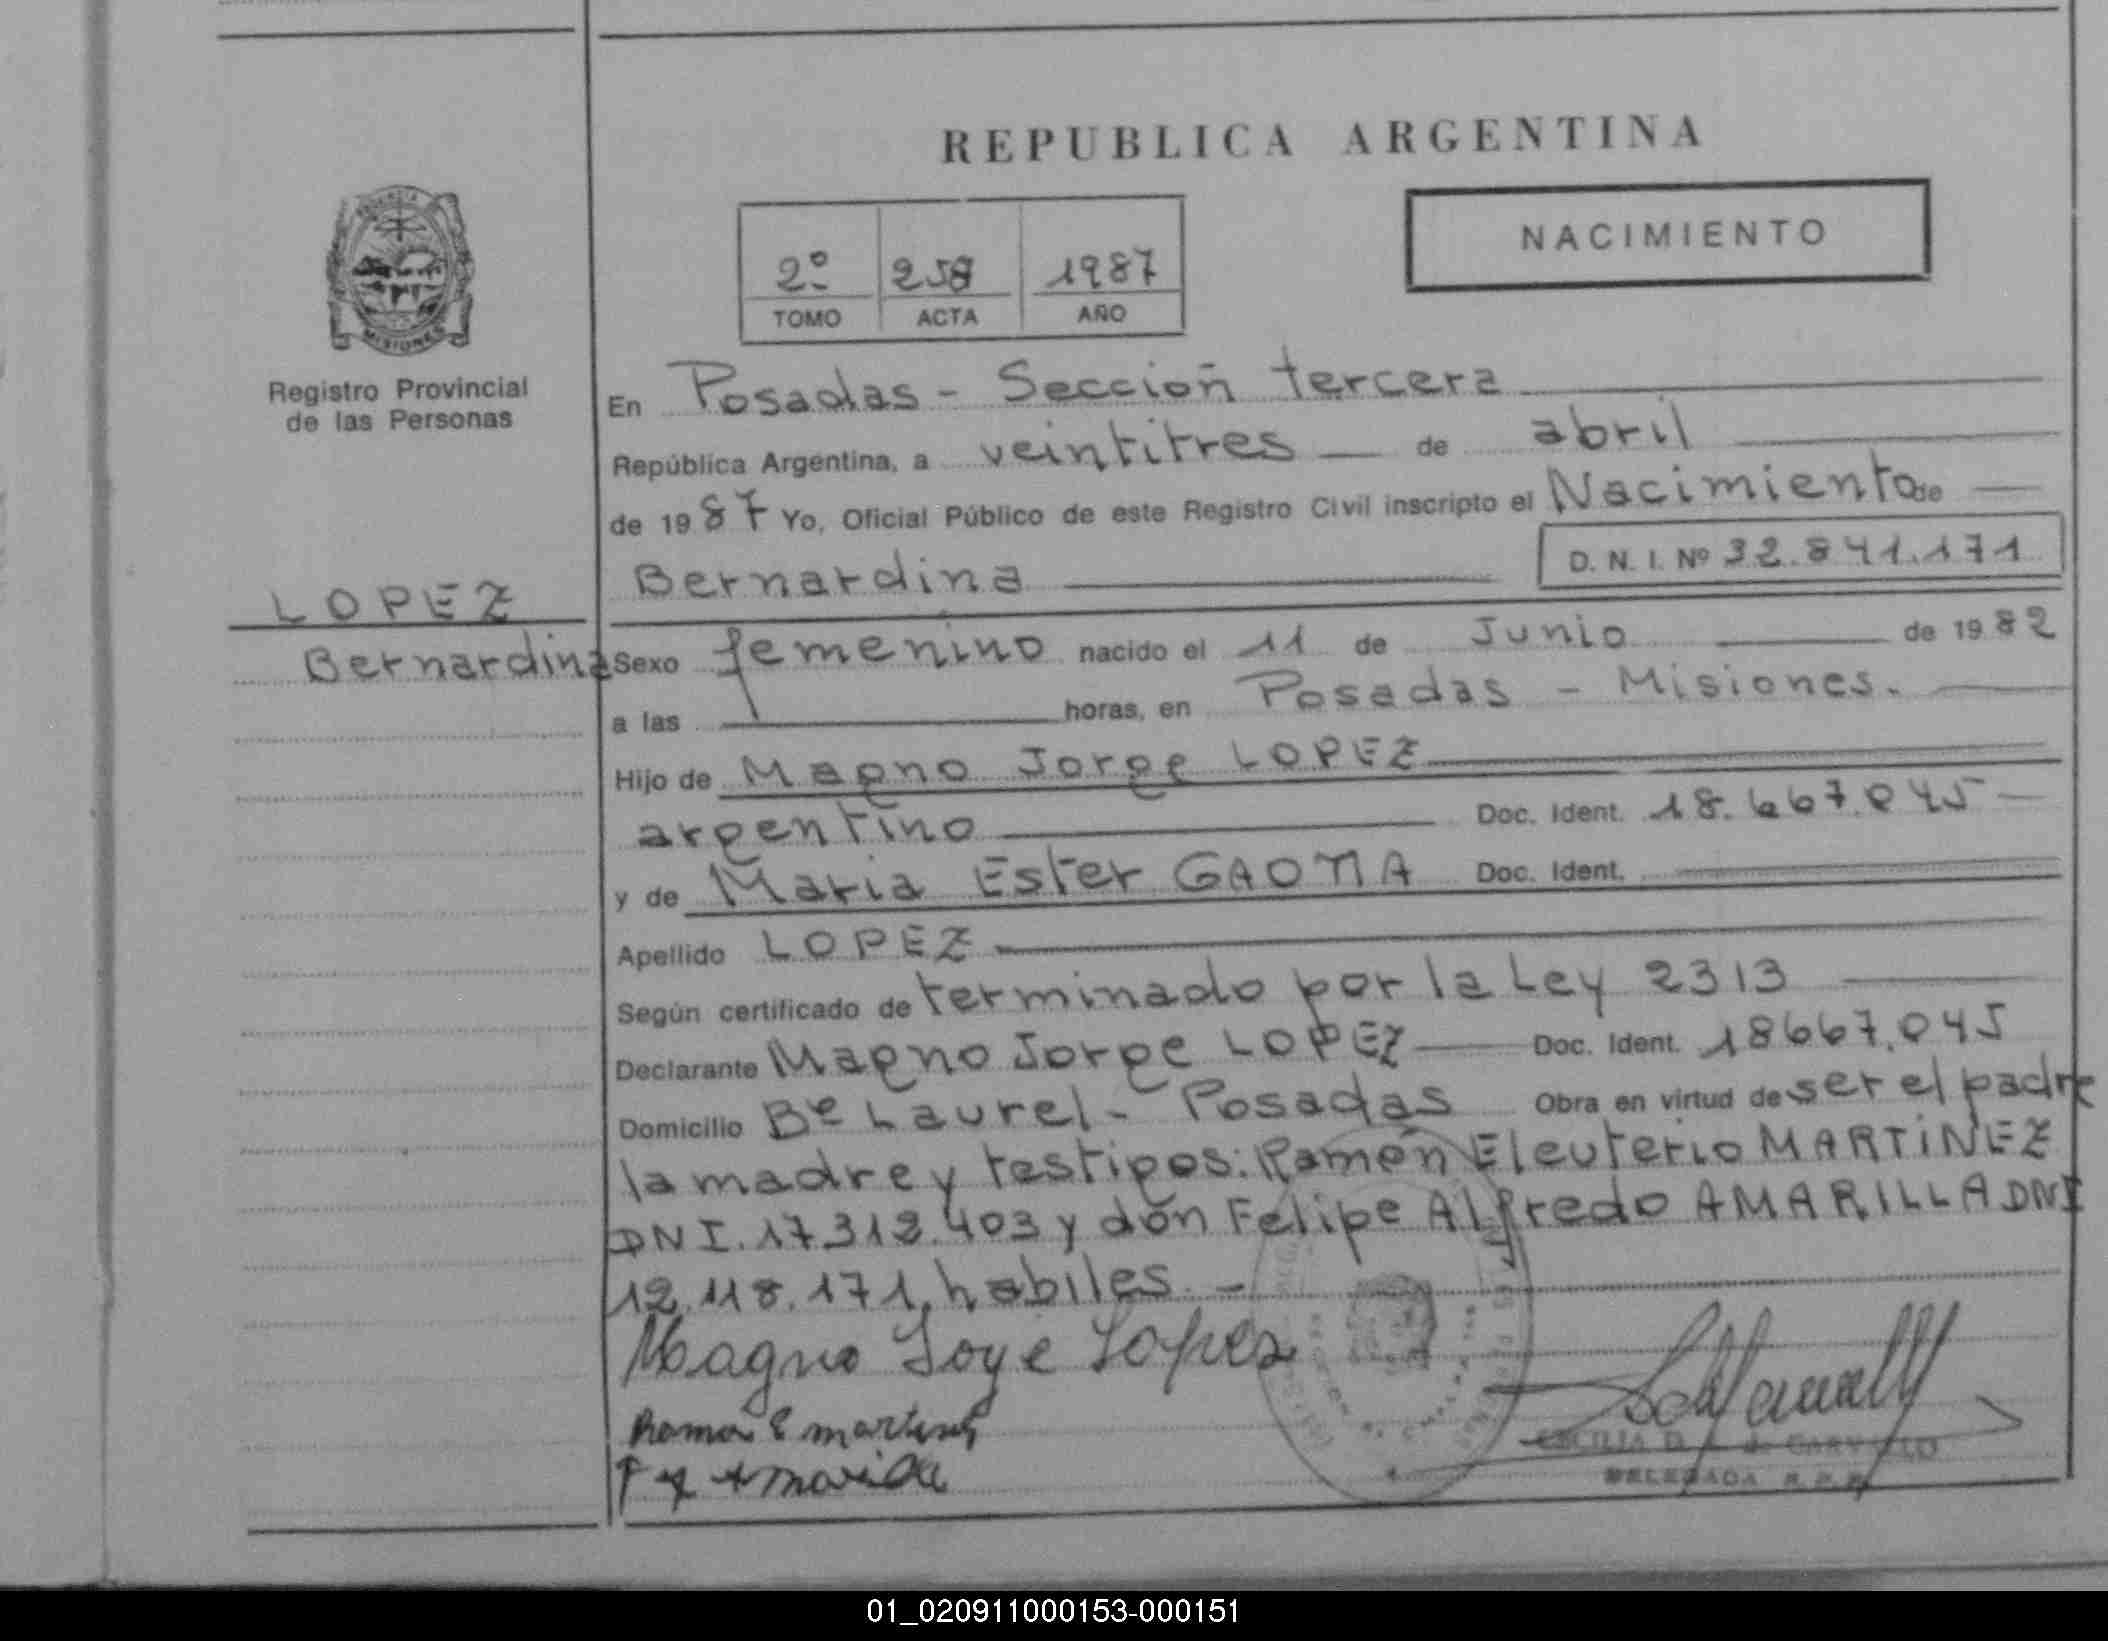 REPUBLICA ARGENTINA
NACIMIENTO
2º 258 1987
TOMO ACTA AÑO
MISIONES
Registro Provincial
de las Personas
LOPEZ
Bernardina
En Posadas - Sección tercera
República Argentina, a veintitres de abril
de 1987 Yo, Oficial Público de este Registro Civil inscripto el Nacimiento de
Bernardina D. N. I. Nº 32.841.171
Sexo femenino nacido el 11 de Junio de 1982
a las horas, en Posadas - Misiones.
Hijo de Magno Jorge LOPEZ
argentino Doc. Ident. 18.667.045
y de Maria Ester GAONA Doc. Ident.
Apellido LOPEZ
Según certificado de terminado por la Ley 2313
Declarante Magno Jorge LOPEZ Doc. Ident. 18667.045
Domicilio Bº Laurel - Posadas Obra en virtud de ser el padre
la madre y testigos: Ramón Eleuterio MARTINEZ
DNI. 17.312.403 y don Felipe Alfredo AMARILLA DNI
12.118.171, habiles. -
Magno Joye Lopez
DELEGADA R.P.P.
01_020911000153-000151